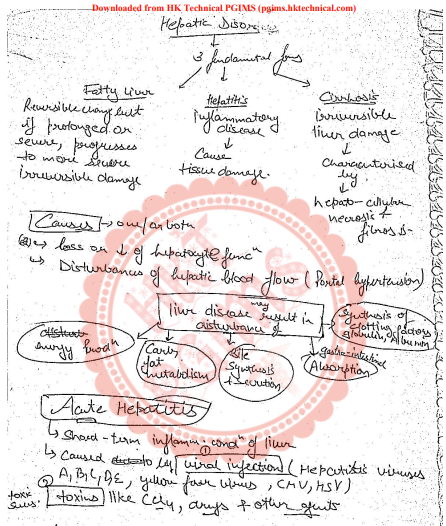 Downloaded from HK Technical PGIMS (pgims.hktechnical.com)
Hepatic Disor
3 fundamental
Fatty Liver
Reversible change but
if prolonged or
severe, progresses
to more severe
irreversible damage
Hepatitis
inflammatory
disease
Cause
tissue damage.
Cirrhosis
irreversible
liver damage
characterised
by
hepato-
necrosis +
fibrosis-
Causes → one/or both
→ loss or ↓ of hepatocyte funcⁿ
→ Disturbances of hepatic blood flow (Portal hypertension)
liver disease may result in
disturbance of
energy prodⁿ
Carb,
fat
metabolism
Bile
synthesis
+ secretion
gastro-intestinal
Absorption
Synthesis of
clotting factors
globulin, Albumin
Acute Hepatitis
↳ Short-term inflamm. condⁿ of liver
↳ Caused by ① viral infection (Hepatitis viruses
A, B, C, D, E, yellow fever virus, CMV, HSV)
② toxins like CCl4, drugs & other agents